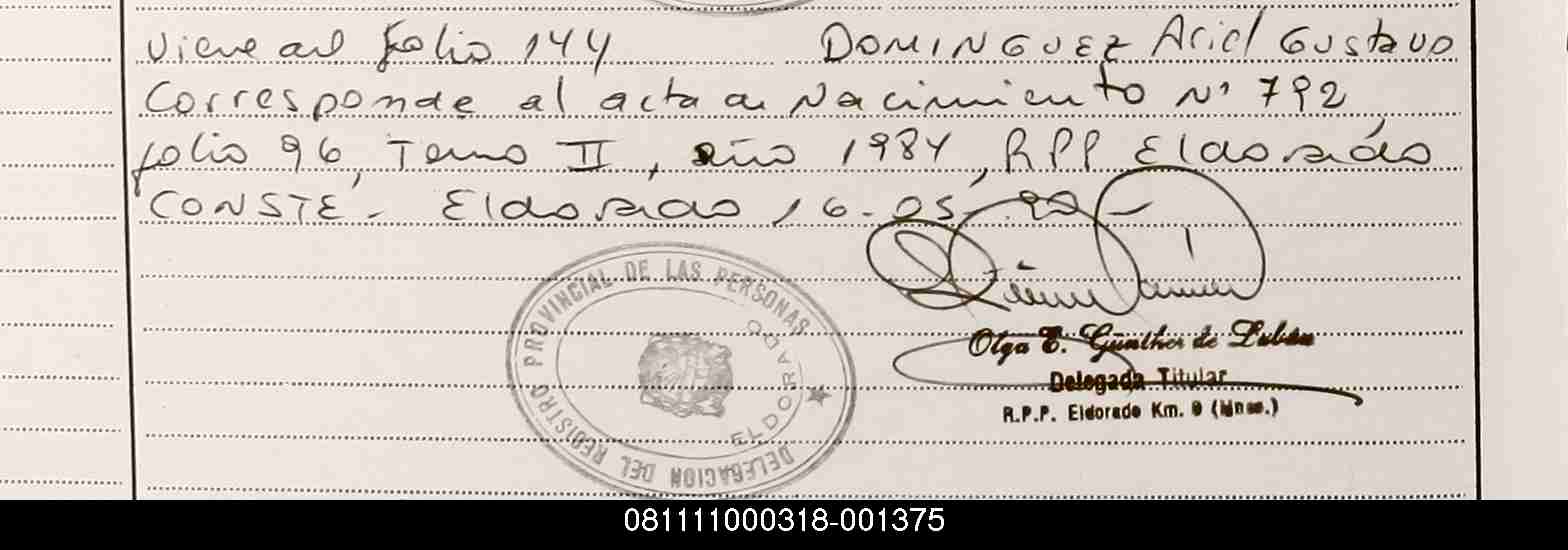 Viene del folio 144 DOMINGUEZ Ariel Gustavo
Corresponde al acta de Nacimiento N° 792
folio 96, Tomo II, año 1984, RPP Eldorado
CONSTE. - Eldorado, 16-05-90-
DELEGACION DEL REGISTRO PROVINCIAL DE LAS PERSONAS
ELDORADO
Olga E. Günther de Luban
Delegada Titular
R.P.P. Eldorado Km. 9 (Mnes.)
081111000318-001375